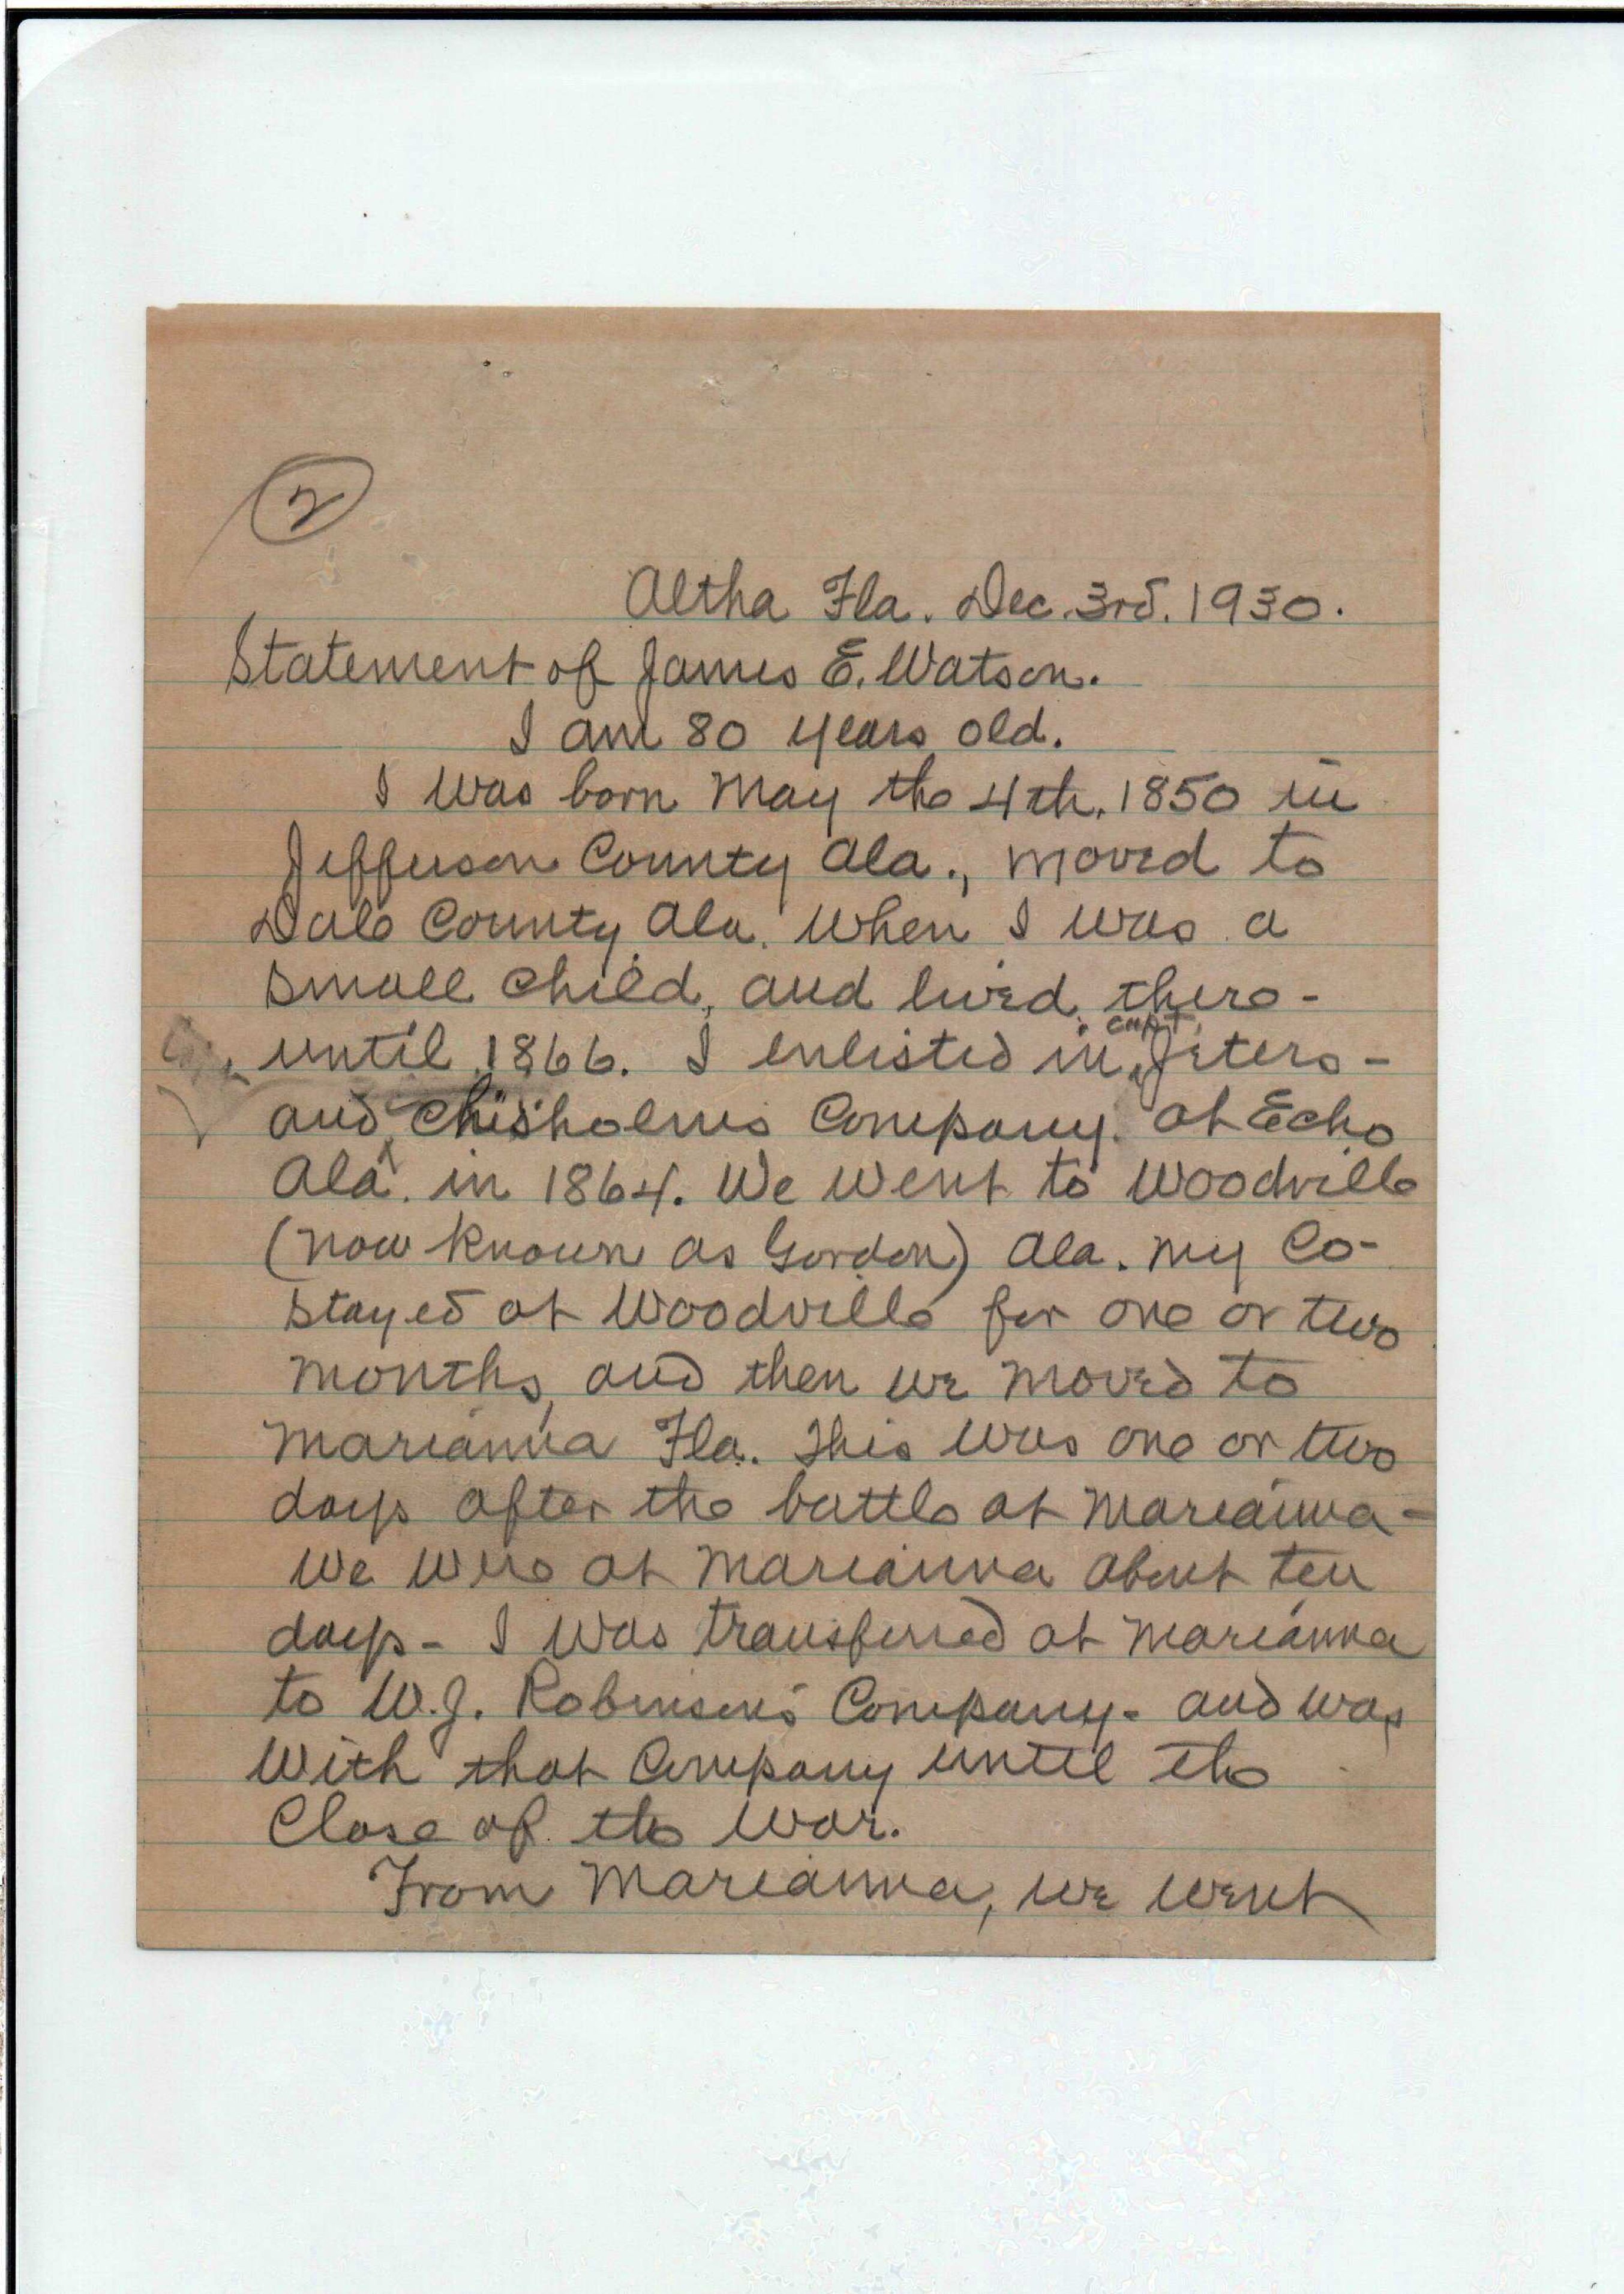 2
Altha Fla. Dec. 3rd. 1930.
Statement of James E. Watson.
I am 80 years old.
I was born May the 4th. 1850 in
Jefferson County Ala., moved to
Dale County Ala. when I was a
small child, and lived there -
until 1866. I enlisted in Capt. Jeters -
and Chisholms Company. at Echo
Ala. in 1864. We went to Woodville
(now known as Gordon) Ala. My Co-
stayed at Woodville for one or two
months, and then we moved to
Marianna Fla. This was one or two
days after the battle at Marianna -
We were at Marianna about ten
days - I was transferred at Marianna
to W.J. Robinson's Company - and was
with that Company until the
Close of the War.
From Marianna, we went